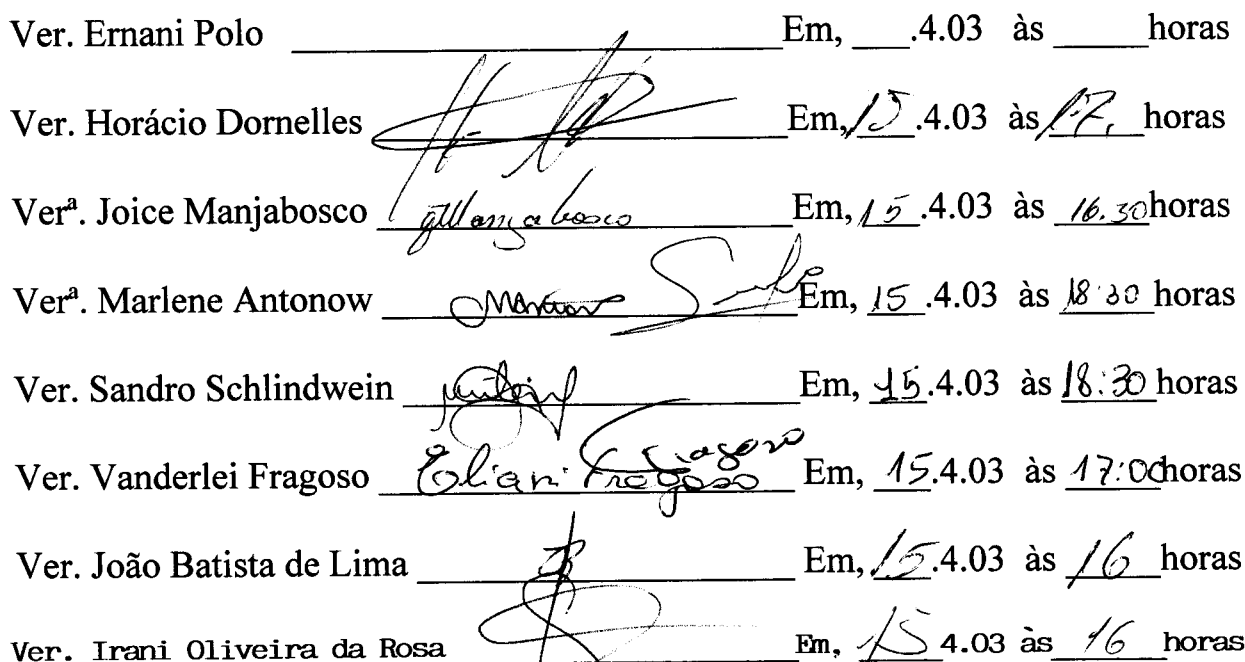 Ver. Ernani Polo ____ Em, ___.4.03 às ____ horas
Ver. Horácio Dornelles Em, 15.4.03 às 17, horas
Verª. Joice Manjabosco Em, 15.4.03 às 16.30 horas
Verª. Marlene Antonow Em, 15.4.03 às 18:30 horas
Ver. Sandro Schlindwein Em, 15.4.03 às 18:30 horas
Ver. Vanderlei Fragoso Eliani Fragoso Em, 15.4.03 às 17:00 horas
Ver. João Batista de Lima Em, 15.4.03 às 16 horas
Ver. Irani Oliveira da Rosa Em, 15 4.03 às 16 horas